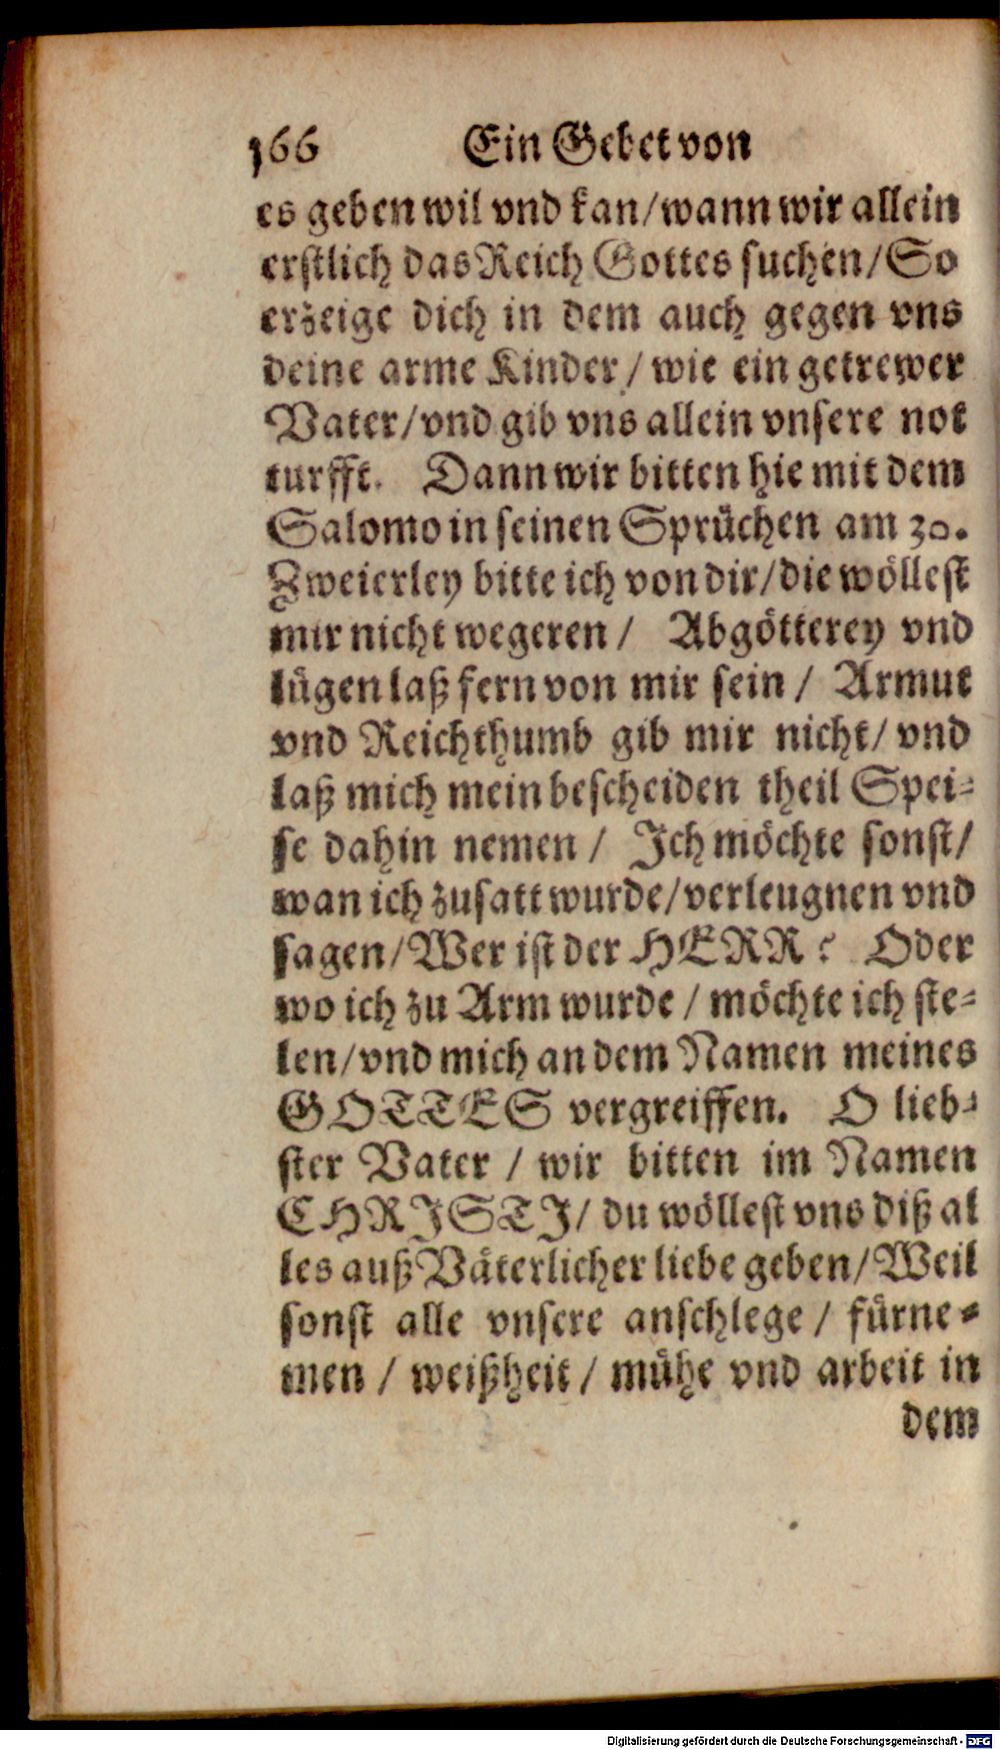 166 Ein Gebet von
es geben wil vnd kan/wann wir allein
erstlich das Reich Gottes suchen/So
erzeige dich in dem auch gegen vns
deine arme Kinder / wie ein getrewer
Vater/vnd gib vns allein vnsere not
turfft. Dann wir bitten hie mit dem
Salomo in seinen Sprüchen am 30.
Zweierley bitte ich von dir/die wöllest
mir nicht wegeren / Abgötterey vnd
lügen laß fern von mir sein / Armut
vnd Reichthumb gib mir nicht/ vnd
laß mich mein bescheiden theil Spei-
se dahin nemen / Ich möchte sonst/
wan ich zusatt wurde/verleugnen vnd
sagen/Wer ist der HERR? Oder
wo ich zu Arm wurde / möchte ich ste-
len/vnd mich an dem Namen meines
GOTTES vergreiffen. O lieb-
ster Vater / wir bitten im Namen
CHRISTI/ du wöllest vns diß al
les auß Väterlicher liebe geben/Weil
sonst alle vnsere anschlege / fürne-
men / weißheit / mühe vnd arbeit in
dem
Digitalisierung gefördert durch die Deutsche Forschungsgemeinschaft - DFG